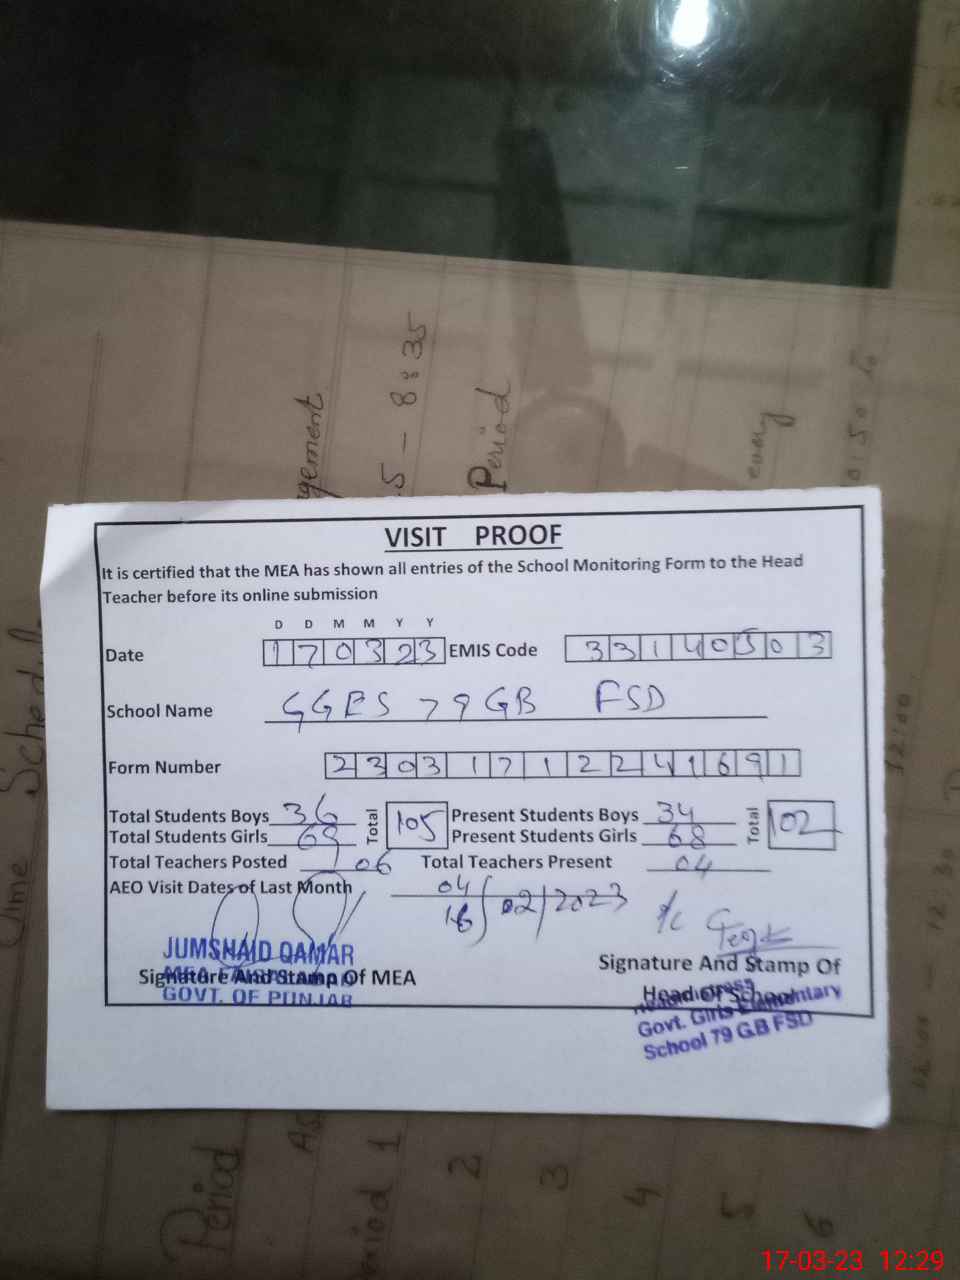 gement
5 - 8:35
Period
VISIT PROOF
It is certified that the MEA has shown all entries of the School Monitoring Form to the Head
Teacher before its online submission
D D M M Y Y
Date 170323 EMIS Code 33140503
School Name GGES 79 GB FSD
Form Number 23031712241691
Total Students Boys 36 Total 105 Present Students Boys 34 Total 102
Total Students Girls 69 Present Students Girls 68
Total Teachers Posted 06 Total Teachers Present 04
AEO Visit Dates of Last Month 04
16 / 02/2023
JUMSHAID QAMAR
Signature And Stamp Of MEA
GOVT. OF PUNJAB
Signature And Stamp Of
Head Of School
Govt. Girls Elementary
School 79 G.B FSD
Time Schedul
12:00
Period
Period 1
2
3
4
5
6
17-03-23 12:29